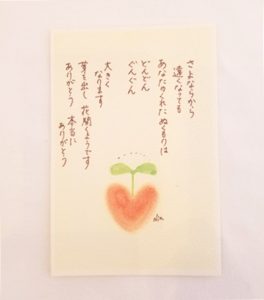 さよならから
遠くなっても
あなたのくれたぬくもりは
どんどん
ぐんぐん
大きく
なります
芽を出し 花開くようです
ありがとう 本当に
ありがとう